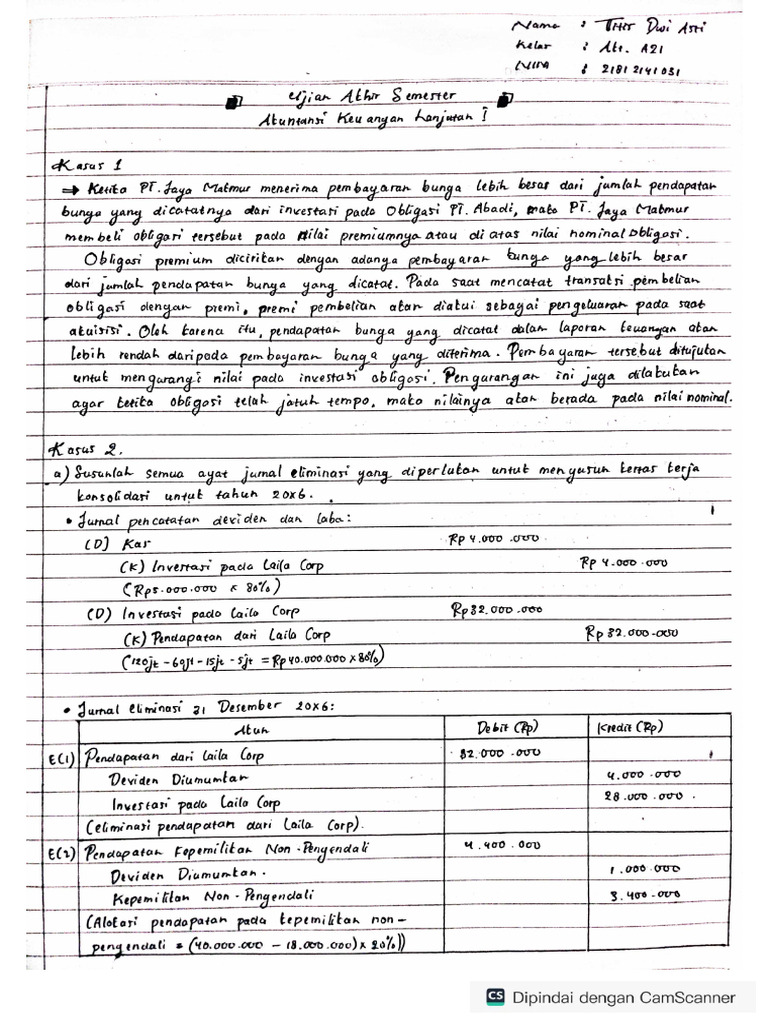 Nama : Titis Dwi Asri
Kelas : Akt. A21
NIM : 21812141031
Ujian Akhir Semester
Akuntansi Keuangan Lanjutan I
Kasus 1
→ Ketika PT. Jaya Makmur menerima pembayaran bunga lebih besar dari jumlah pendapatan
bunga yang dicatatnya dari investasi pada Obligasi PT. Abadi, maka PT. Jaya Makmur
membeli obligasi tersebut pada nilai premiumnya atau di atas nilai nominal obligasi.
Obligasi premium dicirikan dengan adanya pembayaran bunga yang lebih besar
dari jumlah pendapatan bunga yang dicatat. Pada saat mencatat transaksi pembelian
obligasi dengan premi, premi pembelian akan diakui sebagai pengeluaran pada saat
akuisisi. Oleh karena itu, pendapatan bunga yang dicatat dalam laporan keuangan akan
lebih rendah daripada pembayaran bunga yang diterima. Pembayaran tersebut ditujukan
untuk mengurangi nilai pada investasi obligasi. Pengurangan ini juga dilakukan
agar ketika obligasi telah jatuh tempo, maka nilainya akan berada pada nilai nominal.
Kasus 2.
a) Susunlah semua ayat jurnal eliminasi yang diperlukan untuk menyusun kertas kerja
konsolidasi untuk tahun 20x6.
• Jurnal pencatatan deviden dan laba:
(D) Kas Rp 4.000.000
(K) Investasi pada Laila Corp Rp 4.000.000
(Rp5.000.000 x 80%)
(D) Investasi pada Laila Corp Rp32.000.000
(K) Pendapatan dari Laila Corp Rp 32.000.000
(120jt - 60jt - 15jt - 5jt = Rp40.000.000 x 80%)
• Jurnal eliminasi 31 Desember 20x6:
Akun Debit (Rp) Kredit (Rp)
E(1) Pendapatan dari Laila Corp 32.000.000
Deviden Diumumkan 4.000.000
Investasi pada Laila Corp 28.000.000.
(eliminasi pendapatan dari Laila Corp).
E(2) Pendapatan Kepemilikan Non-Pengendali 4.400.000
Deviden Diumumkan. 1.000.000
Kepemilikan Non-Pengendali 3.400.000
(Alokasi pendapatan pada kepemilikan non-
pengendali = (40.000.000 - 18.000.000) x 20%))
CS Dipindai dengan CamScanner